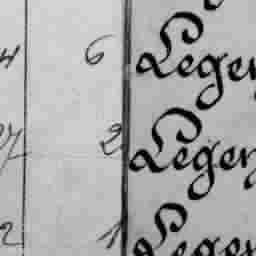 4 6 Legen
27 2 Legen
2 1 Legen